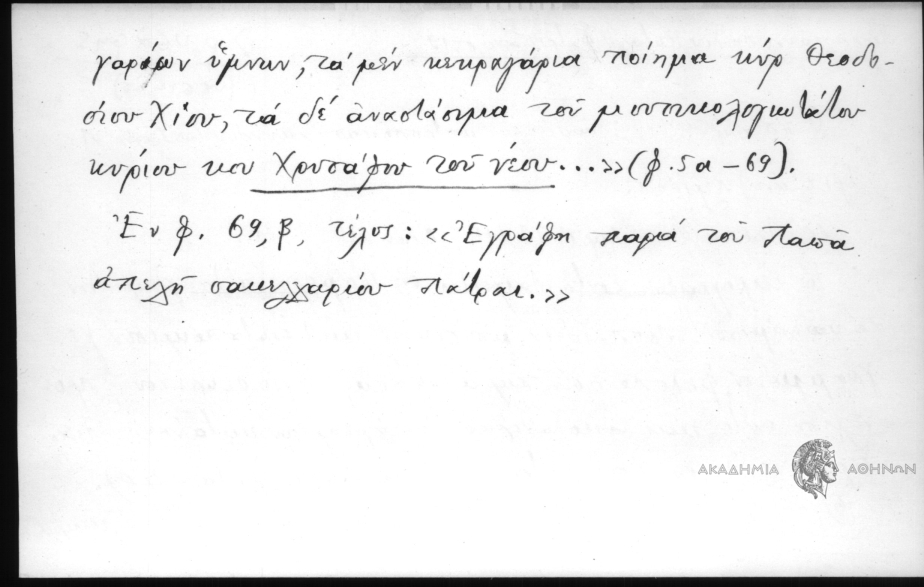 γαρίων ὕμνων, τά μέν κεκραγάρια ποίημα κύρ Θεοδο-
σίου Χίου, τά δέ ἀναστάσιμα τοῦ μουσικολογιωτάτου
κυρίου κου Χρυσάφου τοῦ νέου...»(φ.5α-69).
Ἐν φ. 69,β, τέλος: «Ἐγράφη παρά τοῦ Παπᾶ
ἀπελῆ σακελλαρίου Πάτραι.»
ΑΚΑΔΗΜΙΑ ΑΘΗΝΩΝ